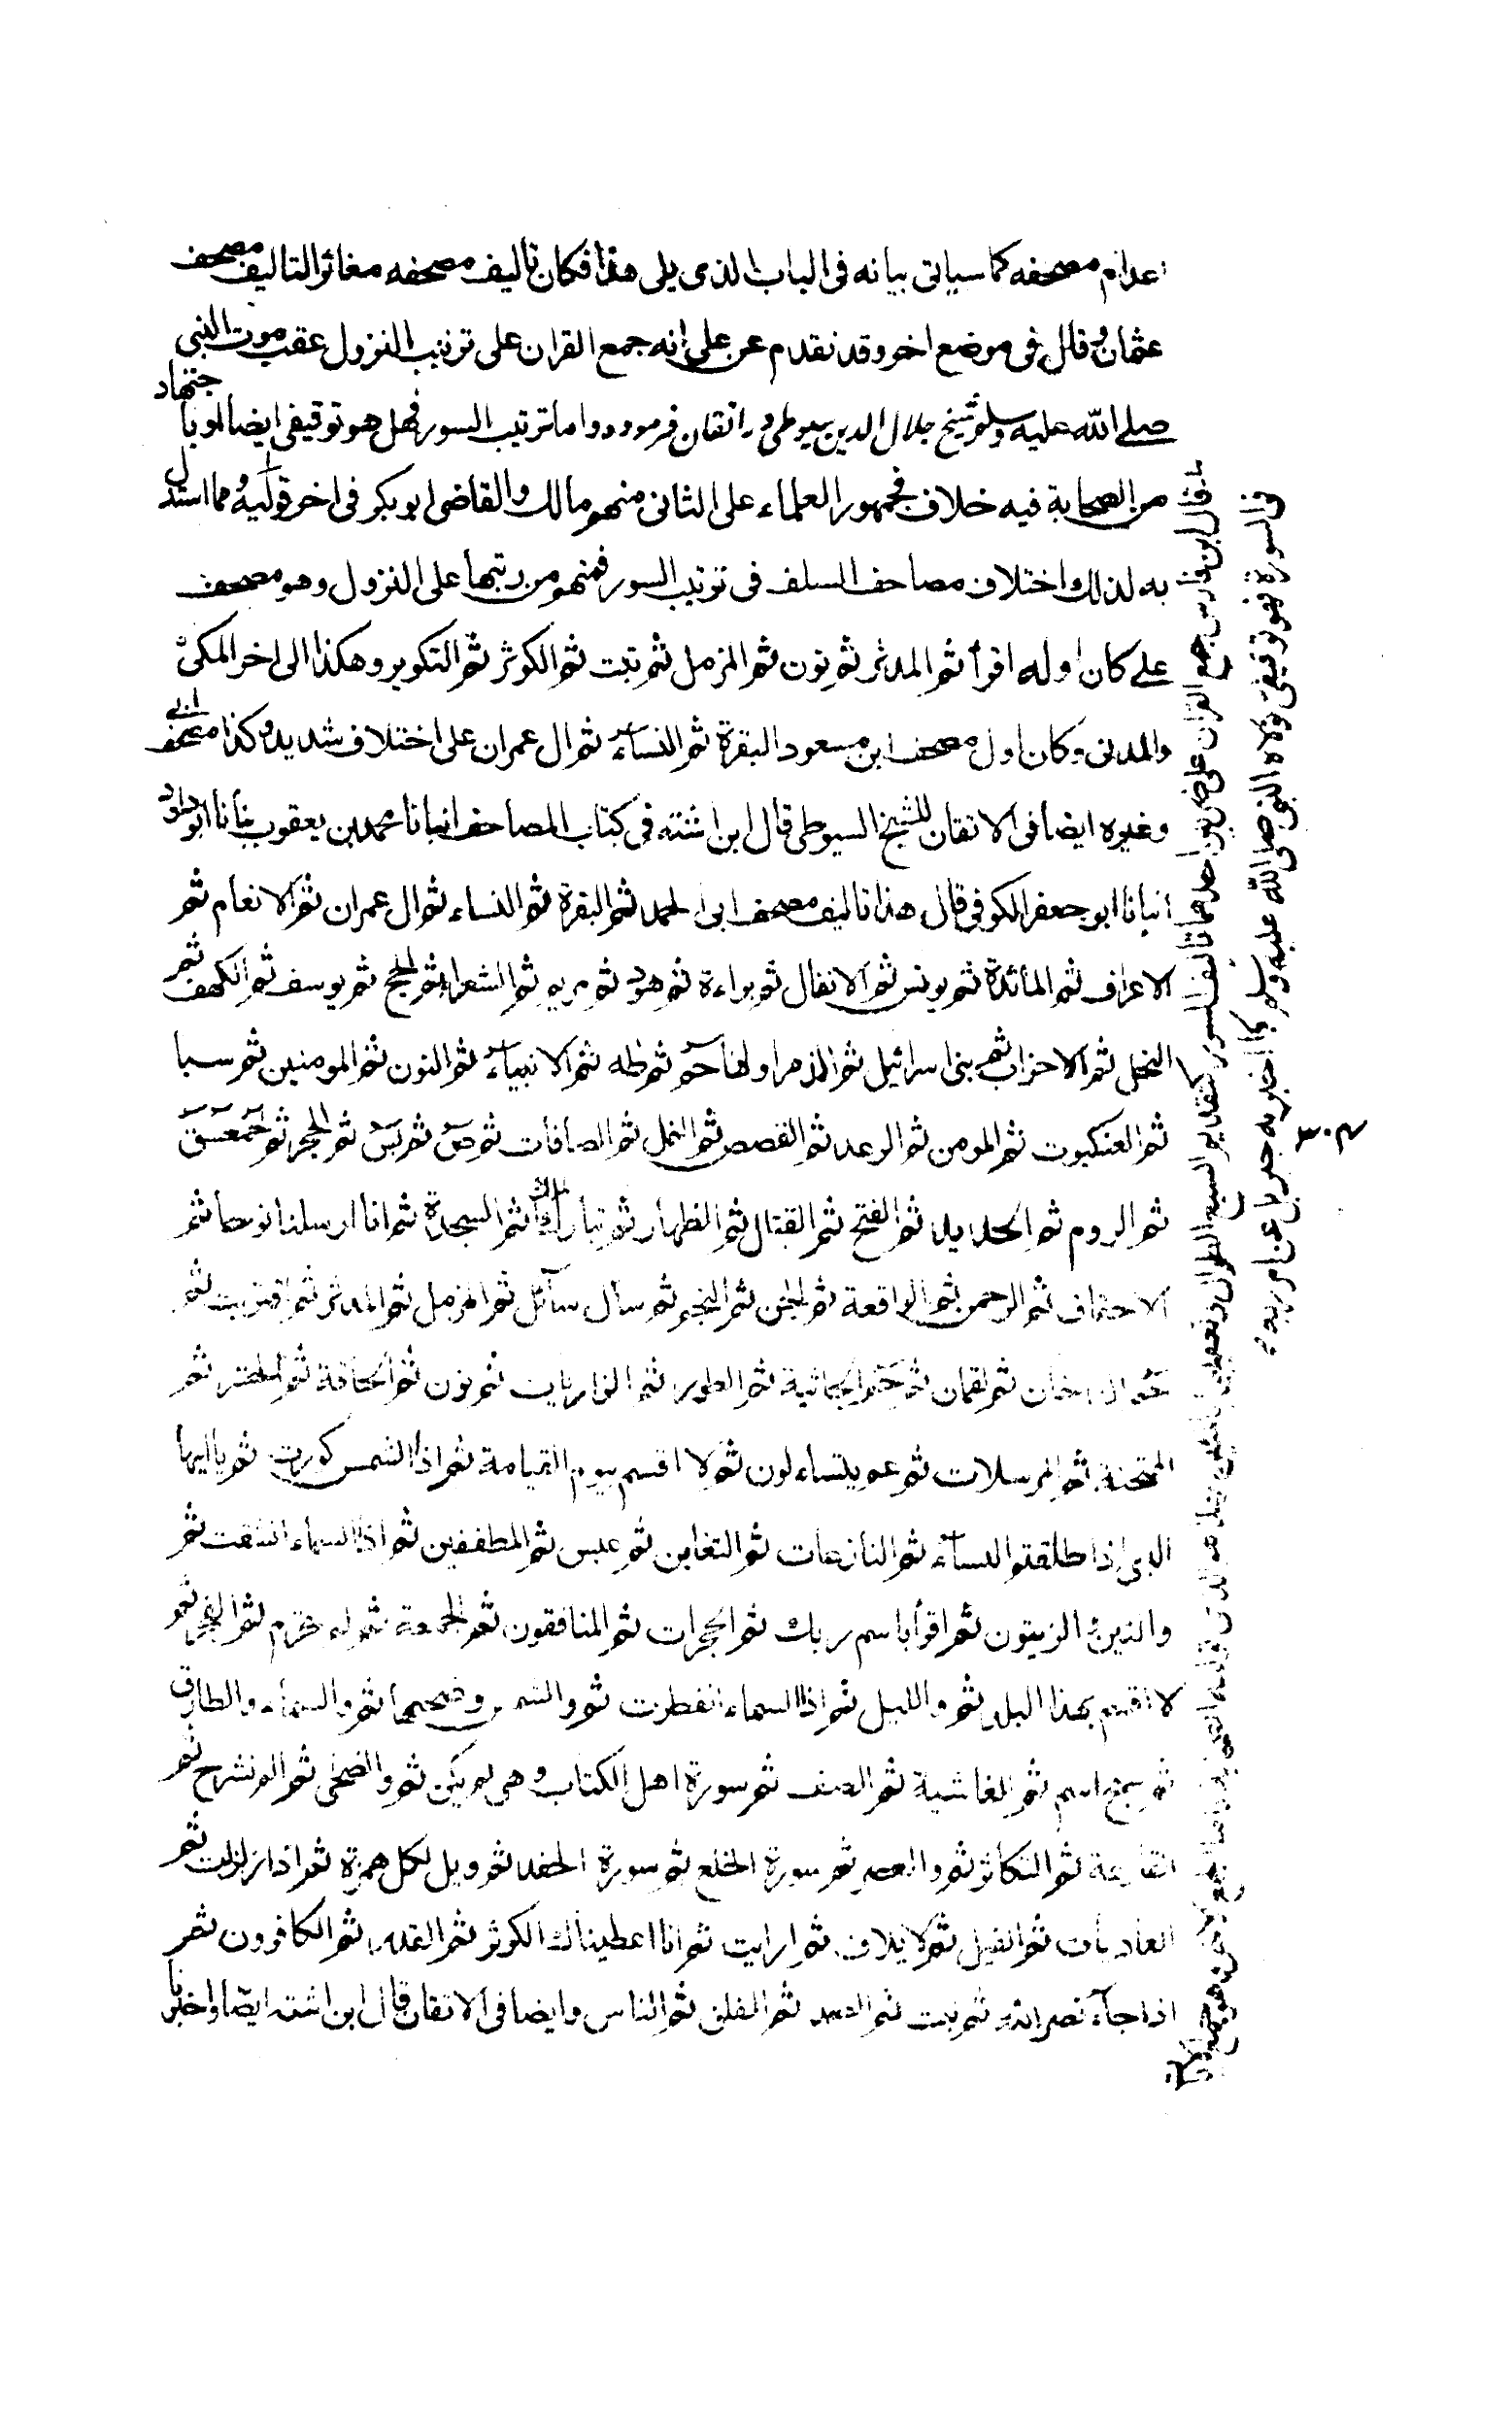 اعدام مصحفه كما سياتى بيانه فى الباب الذى يلى هذا فكان تاليف مصحفه مغائر التاليف مصحف
عثمان وقال فى موضع اخر وقد تقدم عن على انه جمع القران على ترتيب النزول عقب موت النبى
صلے الله عليه وسلم شيخ جلال الدين سيوطى در اتقان فرموده واما ترتيب السور فهل هو توقيفى ايضا او باجتهاد
من الصحابة فيه خلاف فجمهور العلماء على الثانى منهم مالك والقاضى ابو بكر فى اخر قوليه ومما استدل
به لذلك اختلاف مصاحف السلف فى ترتيب السور فمنهم من رتبها على النزول وهو مصحف
علے كان اوله اقرأ ثم المدثر ثم نون ثم المزمل ثم تبت ثم الكوثر ثم التكوير وهكذا الى اخر المكى
والمدنى وكان اول مصحف ابن مسعود البقرة ثم النساء ثم ال عمران على اختلاف شديد وكذا مصحف ابى
وغيره ايضا فى الاتقان للشيخ السيوطى قال ابن اشتته فى كتاب المصاحف انبانا محمد بن يعقوب بنأنا ابو داود
انبانا ابو جعفر الكوفى قال هذا تاليف مصحف ابى الحمد ثم البقرة ثم النساء ثم ال عمران ثم الانعام ثم
الاعراف ثم المائدة ثم يونس ثم الانفال ثم براءة ثم هود ثم مريم ثم الشعراء ثم الحج ثم يوسف ثم الكهف ثم
النحل ثم الاحزاب ثم بنى اسرائيل ثم الزمر اولها حم ثم طه ثم الانبياء ثم النون ثم المومنين ثم سبا
ثم العنكبوت ثم المومن ثم الرعد ثم القصص ثم النمل ثم الصافات ثم ص ثم يس ثم الحجر ثم حمعسق
ثم الروم ثم الحديد ثم الفتح ثم القتال ثم الظهار ثم تبارك الملك ثم السجدة ثم انا ارسلنا نوحا ثم
الاحقاف ثم الرحمن ثم الواقعة ثم الجن ثم النجم ثم سأل سآئل ثم المزمل ثم المدثر ثم اقتربت ثم
حم الدخان ثم لقمان ثم حم الجاثية ثم الطور ثم الذاريات ثم نون ثم الحاقة ثم الحشر ثم
الممتحنة ثم المرسلات ثم عم يتساءلون ثم لا اقسم بيوم القيامة ثم اذا الشمس كورت ثم يا ايها
النبى اذا طلقتم النسآء ثم النازعات ثم التغابن ثم عبس ثم المطففين ثم اذا السماء انشقت ثم
والتين والزيتون ثم اقرأ باسم ربك ثم الحجرات ثم المنافقون ثم الجمعة ثم لم تحرم ثم الفجر ثم
لا اقسم بهذا البلد ثم والليل ثم اذا السماء انفطرت ثم والشمس وضحيها ثم والسماء والطارق
ثم سبح اسم ثم الغاشية ثم الصف ثم سورة اهل الكتاب وهى لم يكن ثم والضحى ثم الم نشرح ثم
القارعة ثم التكاثر ثم والعصر ثم سورة الخلع ثم سورة الحفد ثم ويل لكل همزة ثم اذا زلزلت ثم
العاديات ثم الفيل ثم لايلاف ثم ارايت ثم انا اعطيناك الكوثر ثم القدر ثم الكافرون ثم
اذا جآء نصر الله ثم تبت ثم الصمد ثم الفلق ثم الناس وايضا فى الاتقان قال ابن اشته ايضا واخبرنا
قال ابن فارس جمع القران على ضربين احدهما تاليف السور كتقديم السبع الطوال وتعقيبها بالمئين فهذا هو الذى تولته الصحابة واما الجمع الاخر وهو جمع الايات
فى السورة فهو توقيفى تولاه النبى صلى الله عليه وسلم كما اخبر به جبريل عن امر ربه
٣٠٣